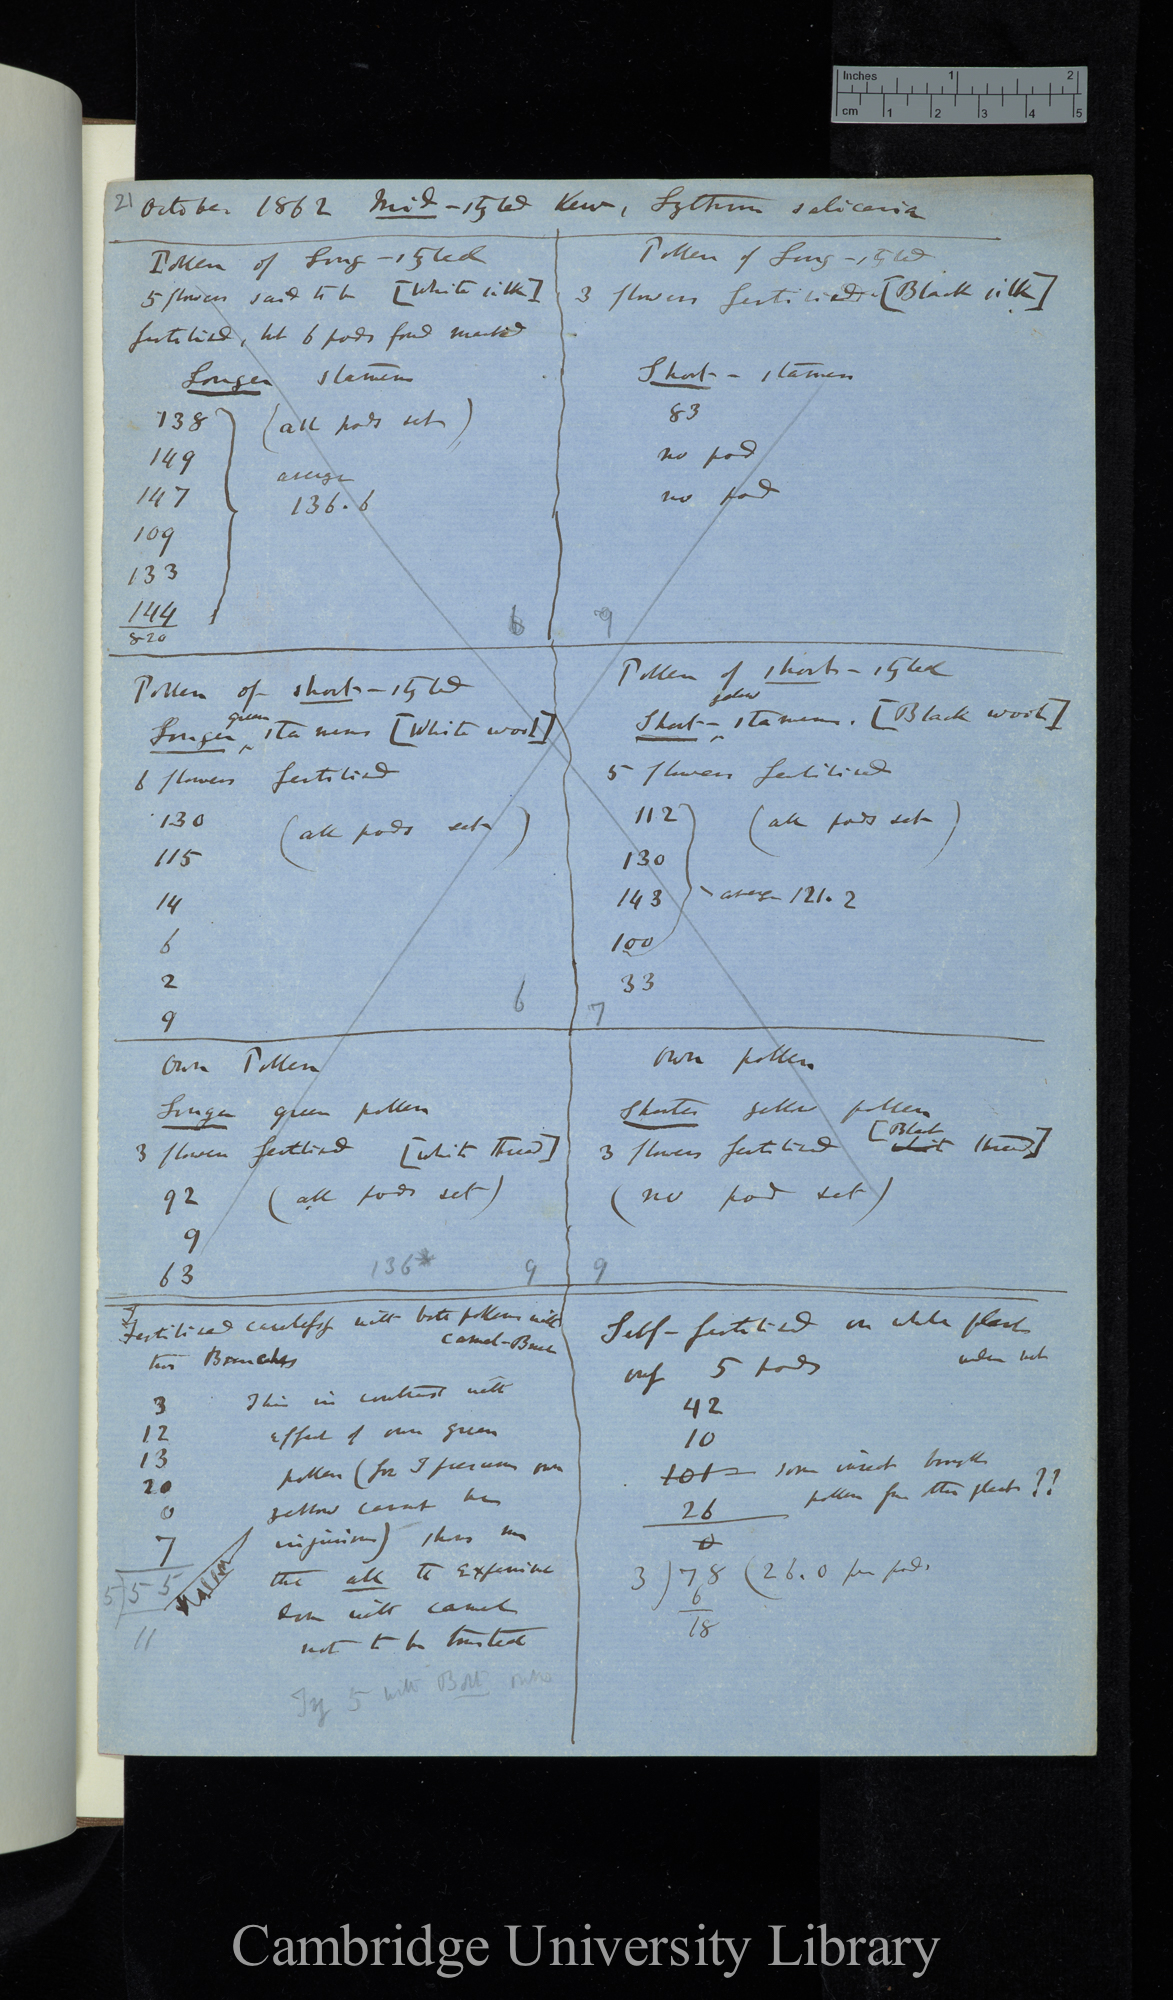 Inches 1 2
cm 1 2 3 4 5
21 October 1862 Mid-styled Kew, Lythrum salicaria
Pollen of Long-styled
5 flowers said to be [White silk]
fertilised, but 6 pods found marked
Longer stamens
138 (all pods set)
149
average
147 136.6
109
133
144
820
6
Pollen of Long-styled
3 flowers fertilised [Black silk]
Short-stamens
83
no pod
no pod
9
Pollen of short-styled
green
Longer ^ stamens [White wool]
6 flowers fertilised
130 (all pods set)
115
14
6
2
9
6
Pollen of short-styled
yellow
Short- ^ stamens. [Black wool]
5 flowers fertilised
112 (all pods set)
130
143 average 121.2
100
33
7
Own Pollen
Longer green pollen
3 flowers fertilised [White thread]
92 (all pods set)
9
63
136*
9
Own pollen
Shorter yellow pollen
[Black
3 flowers fertilised white thread]
(no pod set)
9
Fertilised carefully with both pollens with
camel-Brush
two Branches
3 This in contrast with
12 effect of own green
13 pollen (for I presume own
20 yellow cannot be
0 injurious) shows me
7 the all the experiments
5)55 done with camel
11 not to be trusted
Try 5 with Both
Self-fertilised on whole plant
under net
only 5 pods
42
10
101 — some insect brought
pollen from other plants ??
26
0
3)78(26.0 per pods
6
18
Cambridge University Library